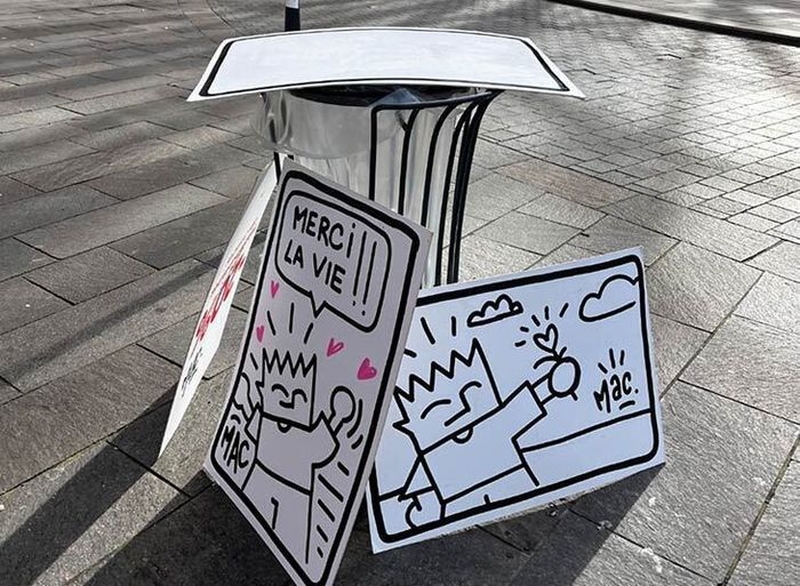 MERCi!!!
LA VIE!!
MAC
Mac.